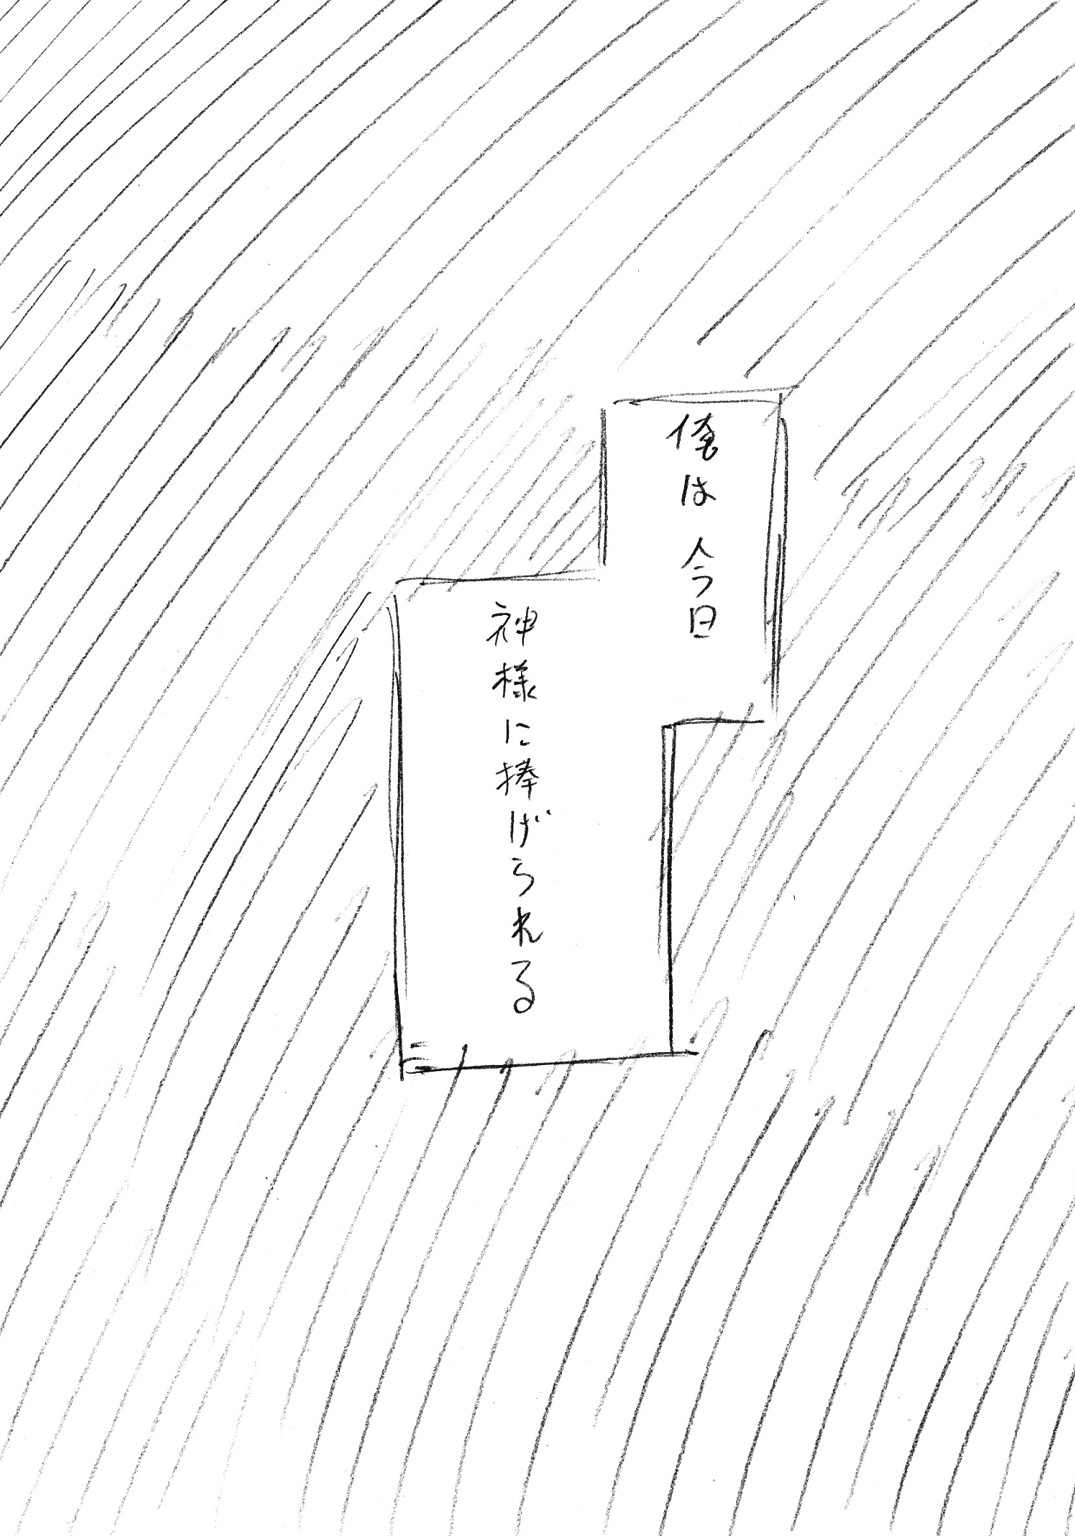 俺は今日
神様に捧げられる